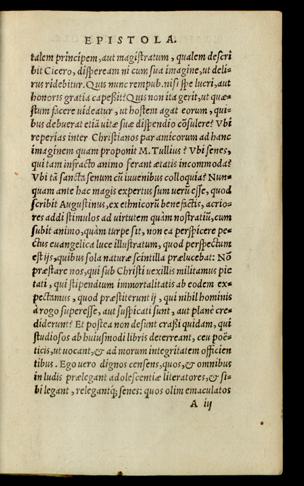 EPISTOLA.
talem principem, aut magistratum, qualem descri
bit Cicero, dispeream ni cum sua imagine, ut deli-
rus ridebitur. Quis nunc rempub. nisi spe lucri, aut
honoris gratia capeßit? Quis non ita gerit, ut quæ-
stum facere uideatur, ut hostem agat eorum, qui-
bus debuerat etiã uitæ suæ dispendio cõsulere? Vbi
reperias inter Christianos par amicorum ad hanc
imaginem quam proponit M. Tullius? Vbi senes,
qui tam infracto animo ferant ætatis incommoda?
Vbi tã sancta senum cũ iuuenibus colloquia? Nun-
quam ante hac magis expertus sum uerũ esse, quod
scribit Augustinus, ex ethnicorũ benefactis, acrio-
res addi stimulos ad uirtutem quàm nostratiũ, cum
subit animo, quàm turpe sit, non ea perspicere pe-
ctus euangelica luce illustratum, quod perspectum
est ijs, quibus sola naturæ scintilla prælucebat: Nõ
præstare nos, qui sub Christi uexillis militamus pie
tati, qui stipendium immortalitatis ab eodem ex-
pectamus, quod præstiterunt ij, qui nihil hominis
à rogo superesse, aut suspicati sunt, aut planè cre-
diderunt? Et postea non desunt craßi quidam, qui
studiosos ab huiusmodi libris deterreant, ceu poë-
ticis, ut uocant, & ad morum integritatem officien
tibus. Ego uero dignos censens, quos, & omnibus
in ludis prælegant adolescentiæ literatores, & si-
bi legant, relegantq; senes: quos olim emaculatos
A iij